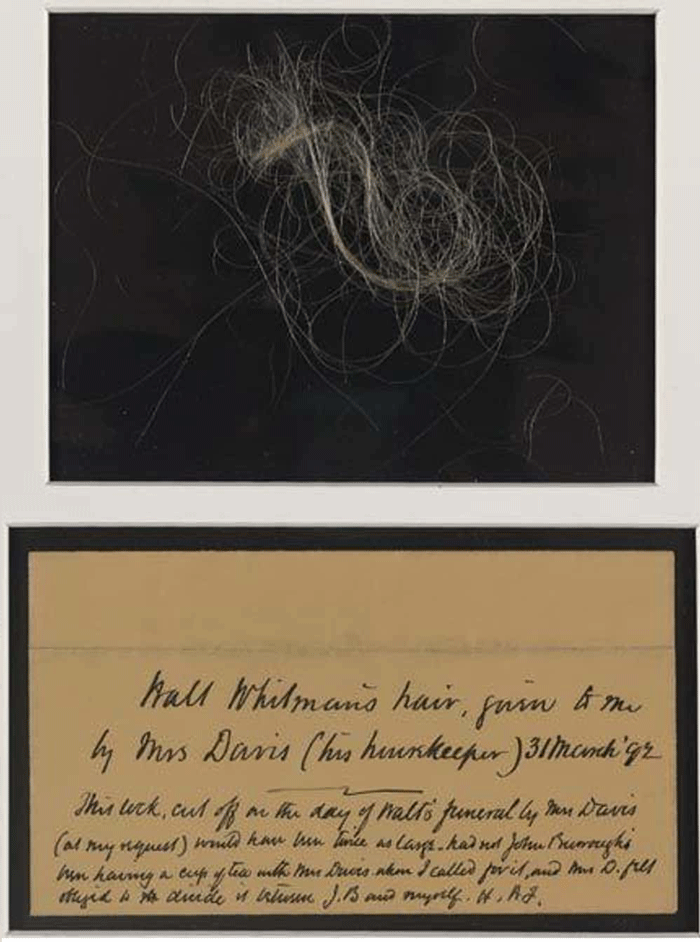 Walt Whitman's hair, given to me
by Mrs Davis (his housekeeper) 31 March '92
This lock, cut off on the day of Walt's funeral by Mrs Davis
(at my request) would have been twice as large - had not John Burroughs
been having a cup of tea with Mrs Davis when I called for it, and Mrs D. felt
obliged to divide it between J.B and myself. H.